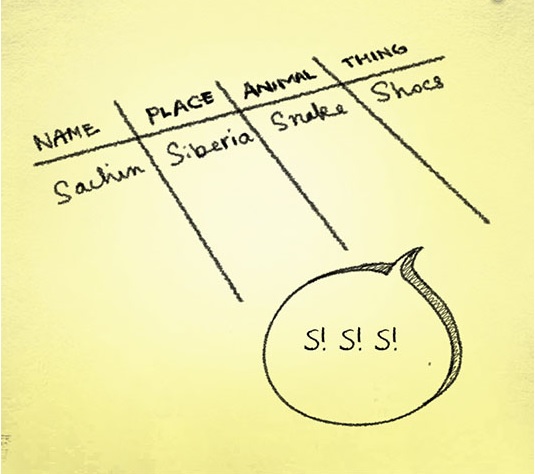 NAME PLACE ANIMAL THING
Sachin Siberia Snake Shoes
S! S! S!